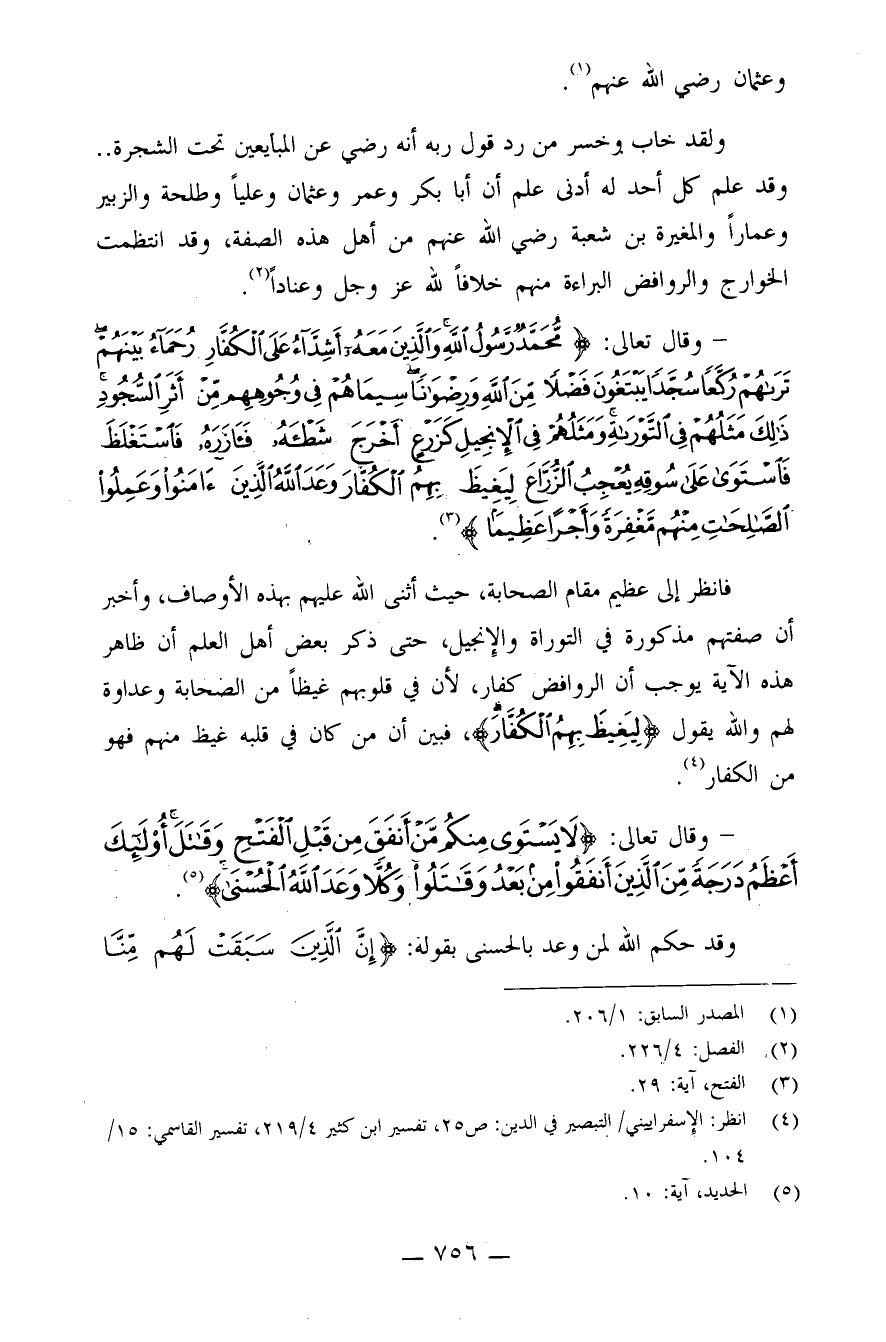 وعثمان رضي الله عنهم(١).
ولقد خاب وخسر من رد قول ربه أنه رضي عن المبايعين تحت الشجرة..
وقد علم كل أحد له أدنى علم أن أبا بكر وعمر وعثمان وعلياً وطلحة والزبير
وعماراً والمغيرة بن شعبة رضي الله عنهم من أهل هذه الصفة، وقد انتظمت
الخوارج والروافض البراءة منهم خلافاً لله عز وجل وعناداً(٢).
– وقال تعالى: ﴿ مُّحَمَّدٌ رَّسُولُ ٱللَّهِ ۚ وَٱلَّذِينَ مَعَهُۥٓ أَشِدَّآءُ عَلَى ٱلْكُفَّارِ رُحَمَآءُ بَيْنَهُمْ ۖ
تَرَىٰهُمْ رُكَّعًا سُجَّدًا يَبْتَغُونَ فَضْلًا مِّنَ ٱللَّهِ وَرِضْوَٰنًا ۖ سِيمَاهُمْ فِى وُجُوهِهِم مِّنْ أَثَرِ ٱلسُّجُودِ ۚ
ذَٰلِكَ مَثَلُهُمْ فِى ٱلتَّوْرَىٰةِ ۚ وَمَثَلُهُمْ فِى ٱلْإِنجِيلِ كَزَرْعٍ أَخْرَجَ شَطْـَٔهُۥ فَـَٔازَرَهُۥ فَٱسْتَغْلَظَ
فَٱسْتَوَىٰ عَلَىٰ سُوقِهِۦ يُعْجِبُ ٱلزُّرَّاعَ لِيَغِيظَ بِهِمُ ٱلْكُفَّارَ ۗ وَعَدَ ٱللَّهُ ٱلَّذِينَ ءَامَنُوا۟ وَعَمِلُوا۟
ٱلصَّٰلِحَٰتِ مِنْهُم مَّغْفِرَةً وَأَجْرًا عَظِيمًۢا ﴾(٣).
فانظر إلى عظيم مقام الصحابة، حيث أثنى الله عليهم بهذه الأوصاف، وأخبر
أن صفتهم مذكورة في التوراة والإنجيل، حتى ذكر بعض أهل العلم أن ظاهر
هذه الآية يوجب أن الروافض كفار، لأن في قلوبهم غيظاً من الصحابة وعداوة
لهم والله يقول ﴿لِيَغِيظَ بِهِمُ ٱلْكُفَّارَ ۗ﴾، فبين أن من كان في قلبه غيظ منهم فهو
من الكفار(٤).
– وقال تعالى: ﴿لَا يَسْتَوِى مِنكُم مَّنْ أَنفَقَ مِن قَبْلِ ٱلْفَتْحِ وَقَٰتَلَ ۚ أُو۟لَٰٓئِكَ
أَعْظَمُ دَرَجَةً مِّنَ ٱلَّذِينَ أَنفَقُوا۟ مِنۢ بَعْدُ وَقَٰتَلُوا۟ ۚ وَكُلًّا وَعَدَ ٱللَّهُ ٱلْحُسْنَىٰ ۚ﴾(٥).
وقد حكم الله لمن وعد بالحسنى بقوله: ﴿إِنَّ ٱلَّذِينَ سَبَقَتْ لَهُم مِّنَّا
(١) المصدر السابق: ٢٠٦/١.
(٢) الفصل: ٢٢٦/٤.
(٣) الفتح، آية: ٢٩.
(٤) انظر: الإسفراييني/ التبصير في الدين: ص٢٥، تفسير ابن كثير ٢١٩/٤، تفسير القاسمي: ١٥/
١٠٤.
(٥) الحديد، آية: ١٠.
— ٧٥٦ —